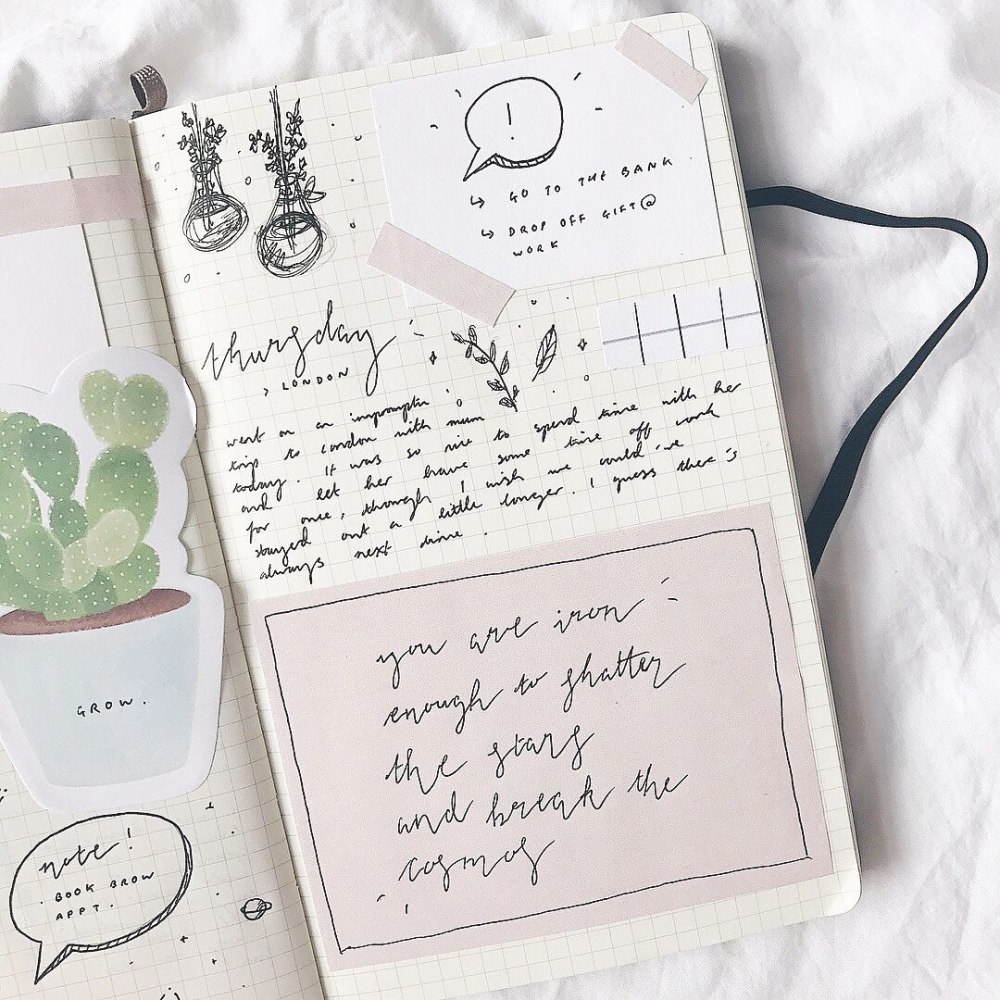 GROW.
note!
BOOK BROW
APPT.
!
↳ GO TO THE BANK
↳ DROP OFF GIFT @
WORK
thursday
> LONDON
went on an impromptu
trip to london with mum
today. It was so nice to spend time with her
and let her have some time off work
for once, though I wish we could've
stayed out a little longer. I guess there's
always next time.
you are iron
enough to shatter
the stars
and break the
cosmos